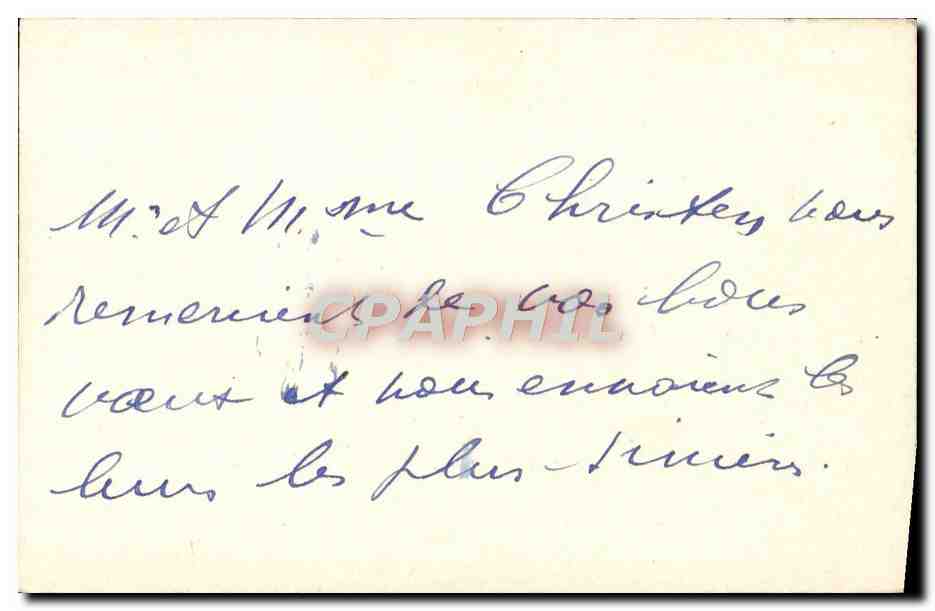 Mr et M.me Christen vous
remercient de vos bons
vœux et vous envoient les
leurs les plus sincères.
CPAPHIL